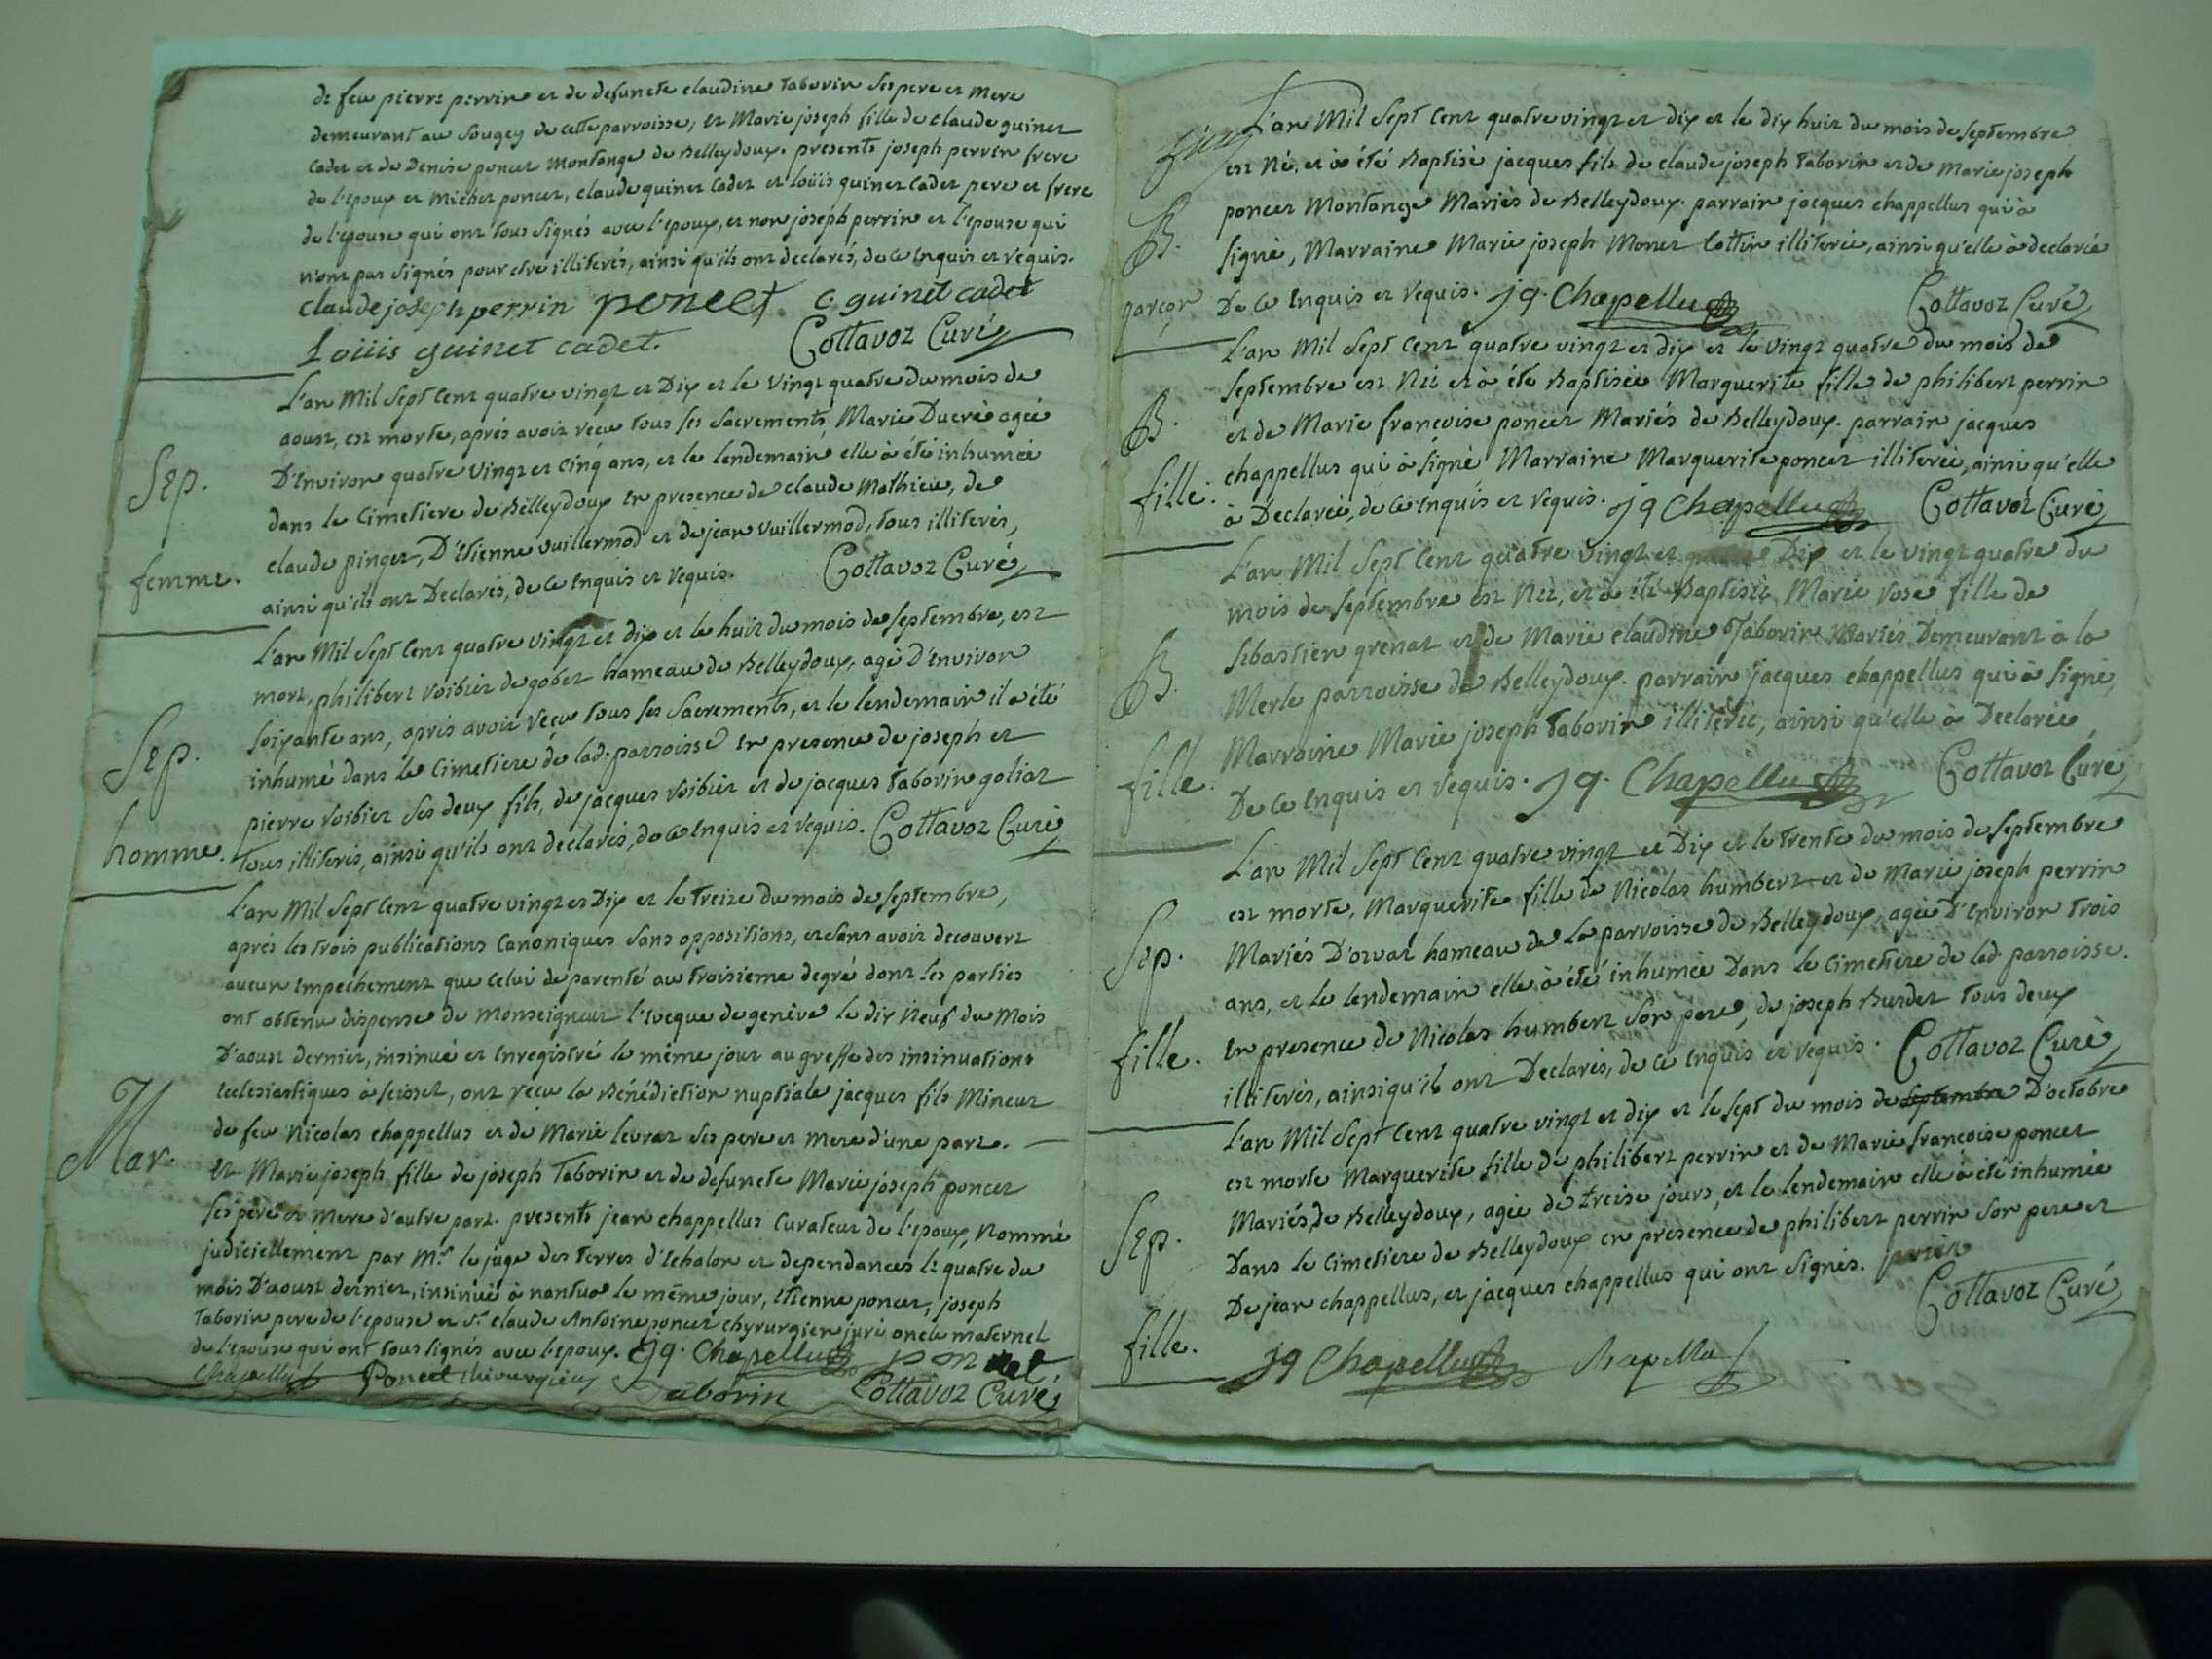 de feu pierre perrin et de defuncte claudine taborin ses pere et mere
demeurant au Sougey de cette parroisse, et Marie joseph fille de claude guinet
Cadet et de Denise poncet Montange de Belleydoux. presents joseph perrin frere
de l'epoux et Michel poncet, claude guinet Cadet et loüis guinet Cadet pere et frere
de l'epouse qui ont tous signés avec l'epoux, et non joseph perrin et l'epouse qui
n'ont pas signés pour etre illiterés, ainsi qu'ils ont déclarés, de ce Enquis et requis.
claude joseph perrin poncet C. guinet cadet
Loüis guinet cadet. Cottavoz Curé
Sep.
femme.
L'an Mil Sept Cent quatre vingt et Dix et le vingt quatre du mois de
aoust, est morte, aprés avoir reçu tous ses Sacrements Marie Ducré agée
D'Environ quatre vingt et cinq ans, et le lendemain elle à été inhumée
dans le Cimetiere de Belleydoux En presence de claude Mathieu, de
claude pinget, D'Etienne vuillermod et de jean vuillermod, tous illiterés,
ainsi qu'ils ont Declarés, de ce Enquis et requis. Cottavoz Curé
Sep.
homme.
L'an Mil Sept Cent quatre vingt et dix et le huit du mois de septembre, est
mort, philibert voibier de gobet hameau de Belleydoux, agé D'Environ
soixante ans, aprés avoir reçu tous ses Sacrements, et le lendemain il a été
inhumé dans le cimetiere de lad. parroisse En presence de joseph et
pierre voibier ses deux fils, de jacques voibier et de jacques taborin goliat
tous illiterés, ainsi qu'ils ont declarés, de ce Enquis et requis. Cottavoz Curé
Mar.
L'an Mil Sept Cent quatre vingt et Dix et le treize du mois de septembre,
aprés les trois publications Canoniques sans oppositions, et sans avoir decouvert
aucun Empechement que celui de parenté au troisieme degré dont les parties
ont obtenu dispense de Monseigneur l'Eveque de genève le dix neuf du Mois
D'aoust dernier, insinué et Enregistré le même jour au greffe des insinuations
Ecclesiastiques à seissel, ont reçu la Bénédiction nuptiale jacques fils Mineur
de feu Nicolas chappellus et de Marie levrat ses pere et mere d'une part.
Et Marie joseph fille de joseph taborin et de defuncte Marie joseph poncet
ses père et mere d'autre part. presents jean chappellus Curateur de l'epoux, Nommé
judiciellement par Mr. le juge des terres d'Echalon et dependances le quatre du
mois D'aoust dernier, insinué à nantua le même jour, Etienne poncet, joseph
taborin pere de l'epouse et Sr. claude Antoine poncet chyrurgien juré oncle maternel
de l'epouse qui ont tous signés avec l'epoux. jq. Chapellus poncet
Chapellus Poncet chirurgien Taborin Cottavoz Curé
B.
garçon
L'an Mil Sept Cent quatre vingt et dix et le dix huit du mois de septembre
est Né, et à été Baptisé jacques fils de claude joseph taborin et de Marie joseph
poncet Montange Mariés de Belleydoux. parrain jacques chappellus qui à
signé, Marraine Marie joseph Monet Cottin illiterée, ainsi qu'elle à declarée
De ce Enquis et requis. jq. Chapellus Cottavoz Curé
B.
fille.
L'an Mil Sept Cent quatre vingt et dix et le vingt quatre du mois de
septembre est Née et à été Baptisée Marguerite fille de philibert perrin
et de Marie françoise poncet Mariés de Belleydoux. parrain jacques
chappellus qui à signé Marraine Marguerite poncet illiterée, ainsi qu'elle
à Declarée, de ce Enquis et requis. jq Chapellus Cottavoz Curé
B.
fille.
L'an Mil Sept Cent quatre vingt et Dix et le vingt quatre du
mois de septembre est Née, et à été Baptisée Marie rose fille de
sebastien grenat et de Marie claudine Taborin Mariés Demeurant à la
Merle parroisse de Belleydoux. parrain jacques chappellus qui à signé,
Marraine Marie joseph taborin illiterée, ainsi qu'elle à Declarée,
De ce Enquis et requis. jq. Chapellus Cottavoz Curé
Sep.
fille.
L'an Mil Sept Cent quatre vingt et Dix et le trente du mois de septembre
est morte, Marguerite fille de Nicolas humbert et de Marie joseph perrin
Mariés D'orvat hameau de la parroisse de Belleydoux, agée D'Environ trois
ans, et le lendemain elle à été inhumée Dans le cimetiere de lad. parroisse.
En presence de Nicolas humbert son pere, de joseph Burdet tous deux
illiterés, ainsi qu'il ont Declarés, de ce Enquis et requis. Cottavoz Curé
Sep.
fille.
L'an Mil Sept Cent quatre vingt et dix et le sept du mois de septembre D'octobre
est morte Marguerite fille de philibert perrin et de Marie françoise poncet
Mariés, de Belleydoux, agée de treise jours, et le lendemain elle à été inhumée
Dans le Cimetiere de Belleydoux en presence de philibert perrin son pere et
De jean chappellus, et jacques chappellus qui ont signés. perrin
Cottavoz Curé
jq Chapellus Chapellus